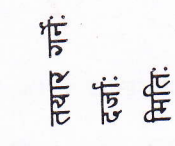 तयार गर्ने:
दर्जा:
मिति: